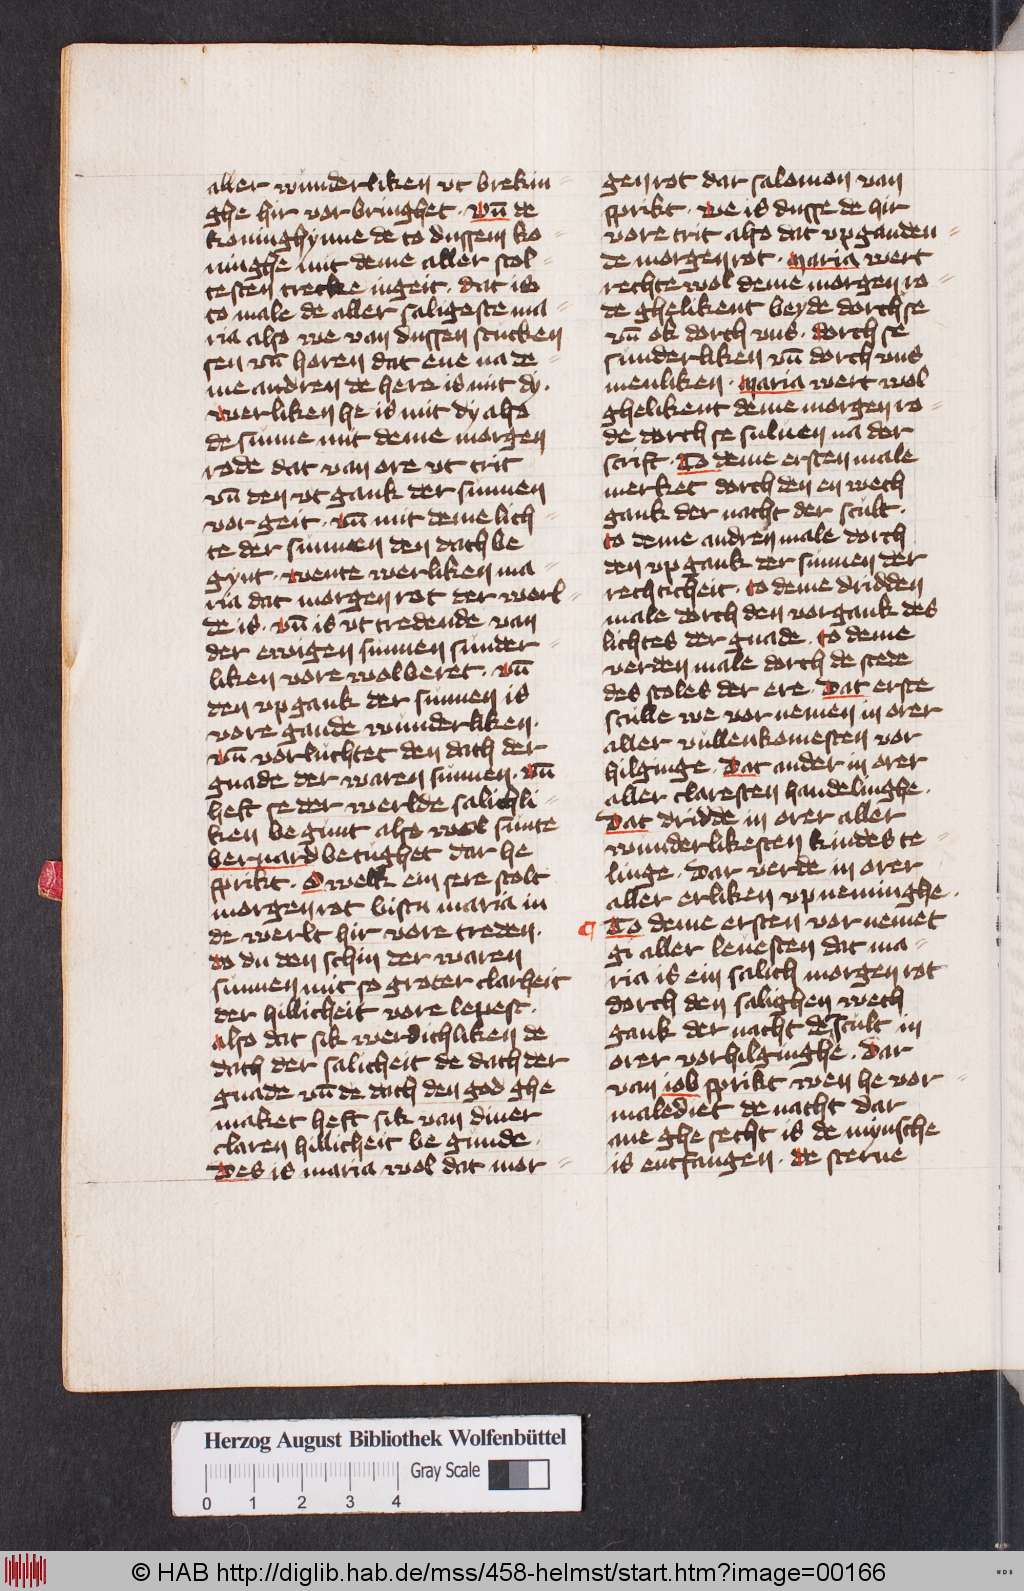 aller wunderliken vt brekin=
ghe hir vor bringhet. vn̄ de
koninghynne de to dussem ko
ninghe mit deme aller stol=
testen trecke ingeit. dat is
to male de aller saligeste ma=
ria also we van dussen stucken
sen vn̄ horen dat ene na de=
me andren de here is mit dy.
werliken he is mit dy also
de sunne mit deme morgen
rode dat van ore vt trit
vn̄ den vt gank der sunnen
vor geit. vn̄ mit deme lich=
te der sunnen den dach be
gynt. wente werliken ma=
ria dat morgen rot der werl=
de is. vn̄ is vt tredende van
der ewigen sunnen sunder=
liken vore wolberet. vn̄
den vpgank der sunnen is
vore gande wunderliken.
vn̄ vorluchtet den dach der
gnade der waren sunnen. vn̄
heft se der werlde salichli=
ken begunt also wol sunte
bernard betughet dar he
sprikt. O welk ein sere stolt
morgen rot bistu maria in
de werlt hir vore treden.
do du den schin der waren
sunnen mit so groter clarheit
der hillicheit vore lepest.
also dat sik werdichliken de
dach der salicheit de dach der
gnade vn̄ de dach den god ghe
maket heft sik van diner
claren hillicheit begunde.
Des is maria wol dat mor=
gen rot dar salomon van
sprikt. we is dusse de hir
vore trit also dat vpganden=
de morgen rot. Maria wert
rechte wol deme morgen ro=
de ghelikent beyde dorch se
vn̄ ok dorch vns. dorch se
sunderliken vn̄ dorch vns
menliken. Maria wert wol
ghelikent deme morgen ro=
de dorch se suluen na der
scrift. To deme ersten male
merket dorch den en wech
gank der nacht der scult.
to deme andren male dorch
den vpgank der sunnen der
rechticheit. to deme dridden
male dorch den vorgank des
lichtes der gnade. to deme
verden male dorch de stede
des stoles der ere. Dat erste
sculle we vornemen in orer
aller vullenkomesten vor
hilginge. Dat ander in orer
aller claresten handelinghe.
Dat dridde in orer aller
wunderlikesten kindes te=
linge. Dar verde in orer
aller erliken vpneminghe.
¶ To deme ersten vornemet
gi aller leuesten dat ma=
ria is ein salich morgen rot
dorch den salighen wech
gank der nacht de scult in
orer vorhilginghe. Dar
van iob sprikt wen he vor=
malediet de nacht dar
ane ghesecht is de mynsche
is entfangen. de sterne
Herzog August Bibliothek Wolfenbüttel
Gray Scale
0 1 2 3 4
© HAB http://diglib.hab.de/mss/458-helmst/start.htm?image=00166